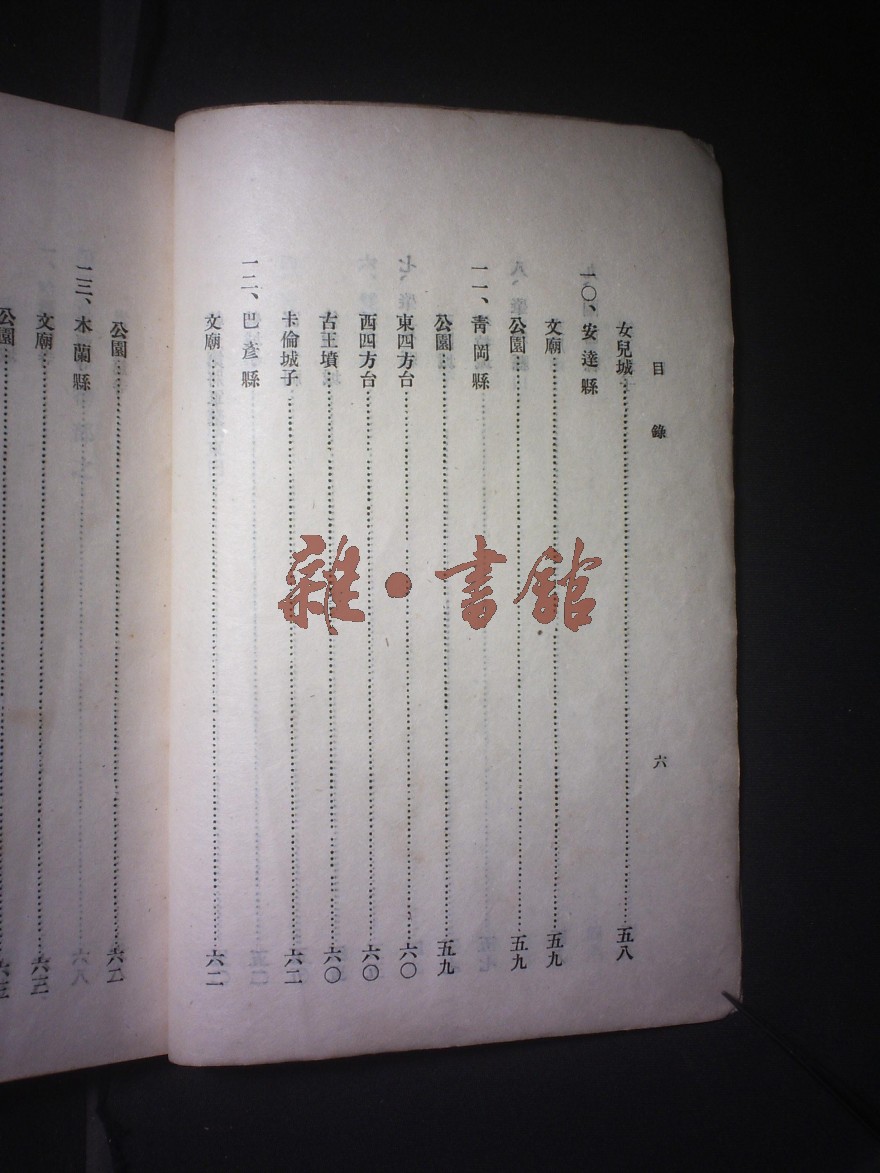 目錄
六
女兒城……五八
一〇、安達縣
文廟……五九
公園……五九
一一、青岡縣
公園……五九
東四方台……六〇
西四方台……六〇
古王墳……六〇
卡倫城子……六二
一二、巴彥縣
文廟……六二
公園……六二
一三、木蘭縣
文廟……六三
公園……六三
雜·書館